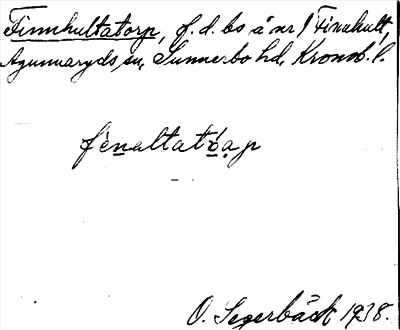 Finnhultatorp, f. d. bs å nr 1 Finnhult,
Agunnaryds sn, Sunnerbo hd, Kronob. l.
fènaltató̱a̤p
O. Segerbäck 1938.